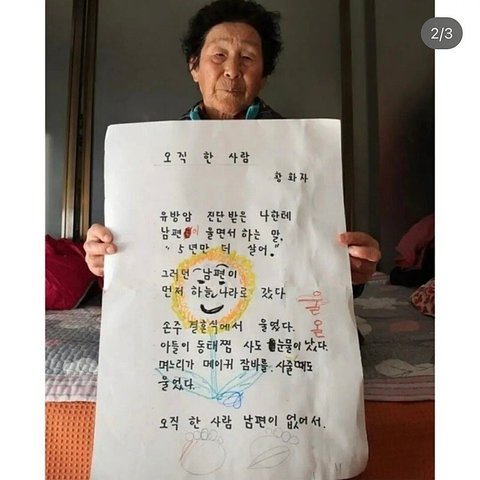 2/3
오직 한 사람
황 화 자
유방암 진단 받은 나한테
남편이 울면서 하는 말,
"5년만 더 살어."
그러던 남편이
먼저 하늘나라로 갔다
손주 결혼식에서 울었다.
아들이 동태찜 사도 눈물이 났다.
며느리가 메이커 잠바를 사줄때도
울었다.
오직 한 사람 남편이 없어서.